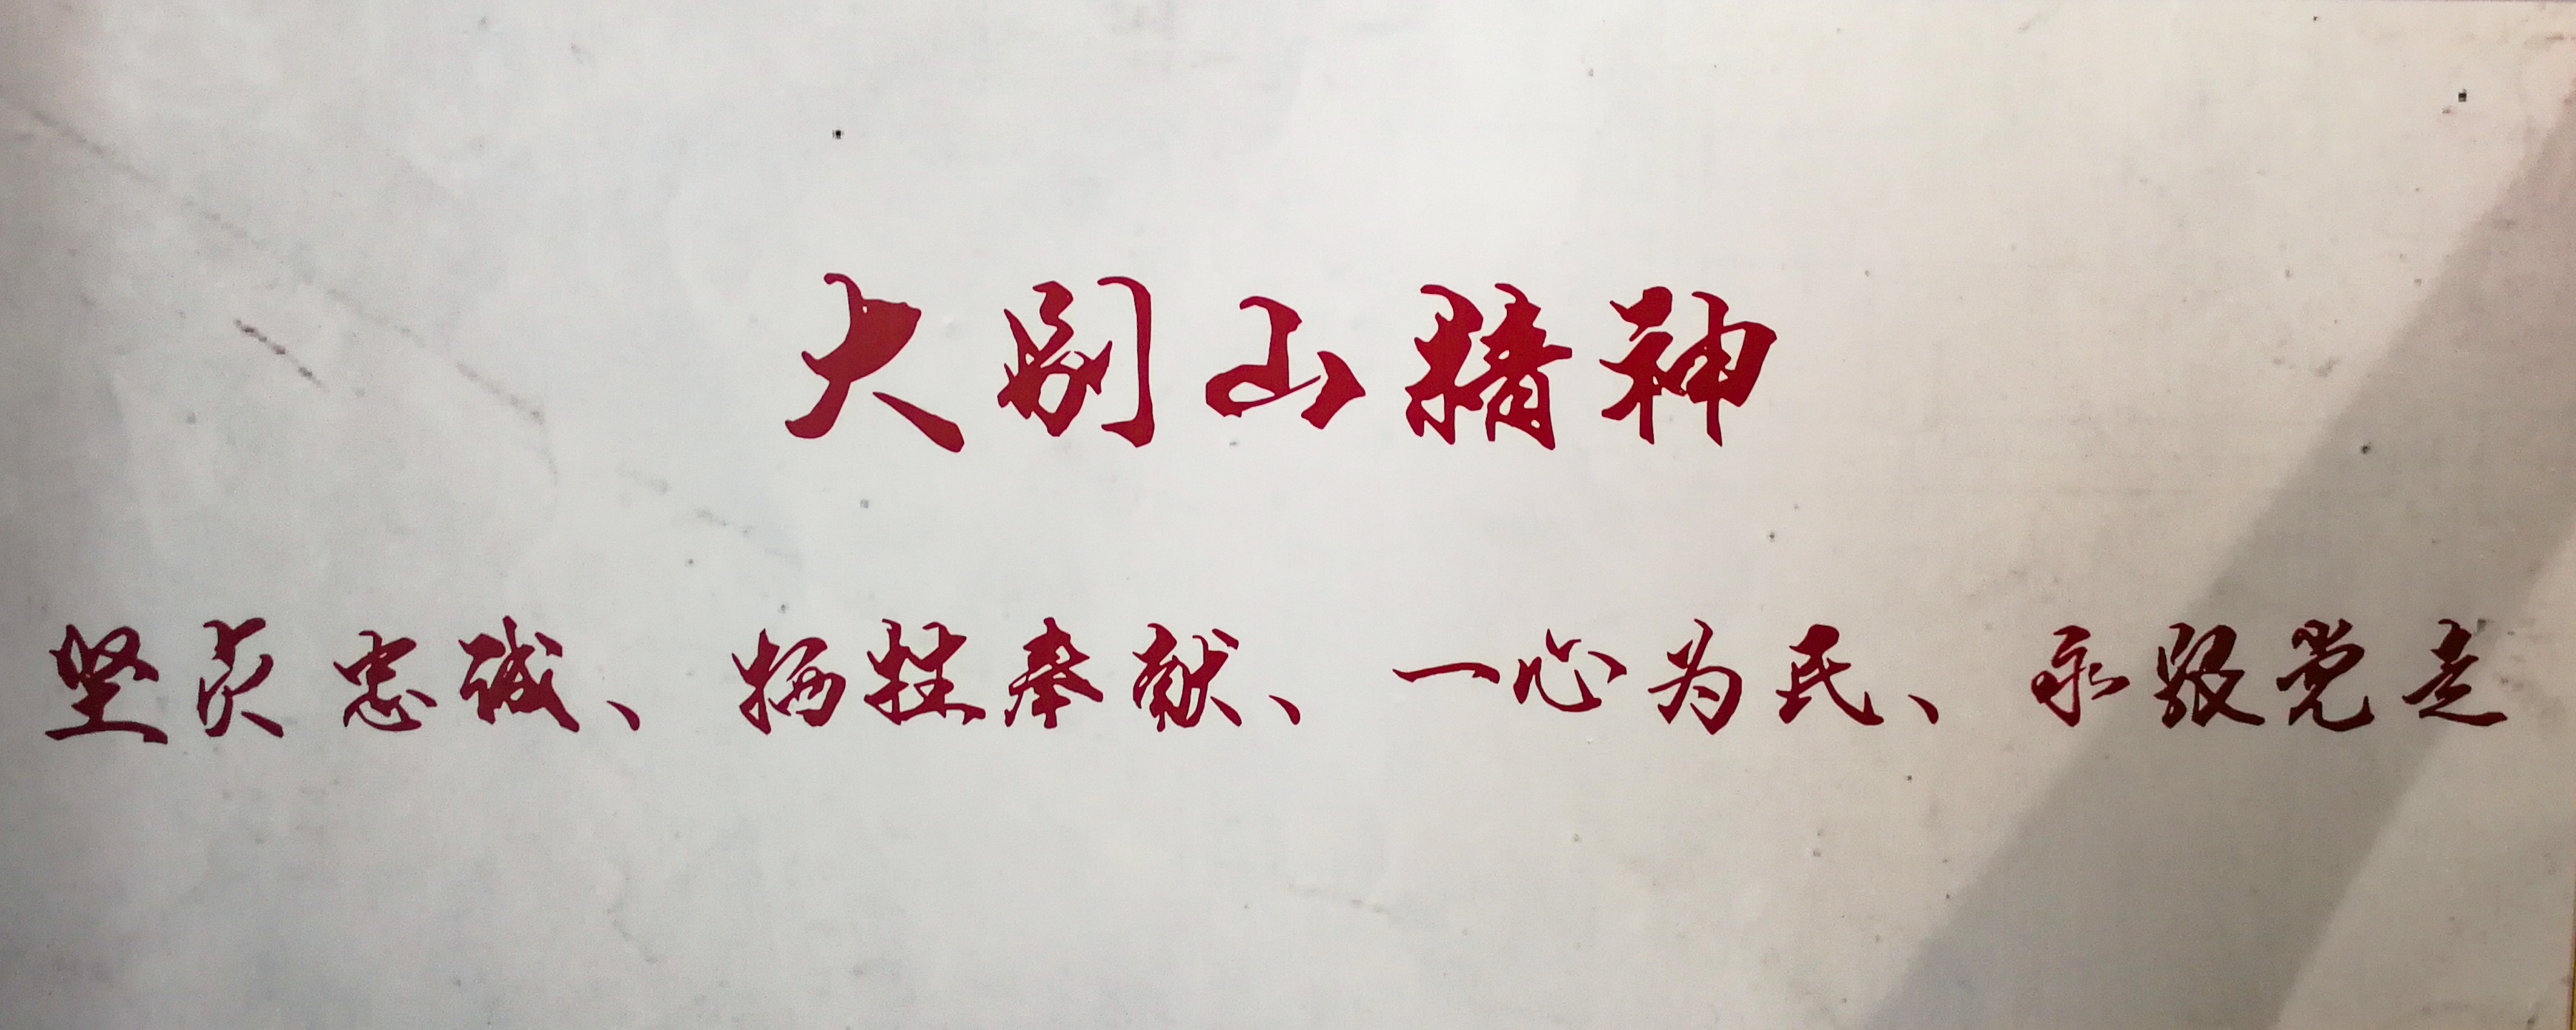 大别山精神
坚贞忠诚、牺牲奉献、一心为民、永跟党走